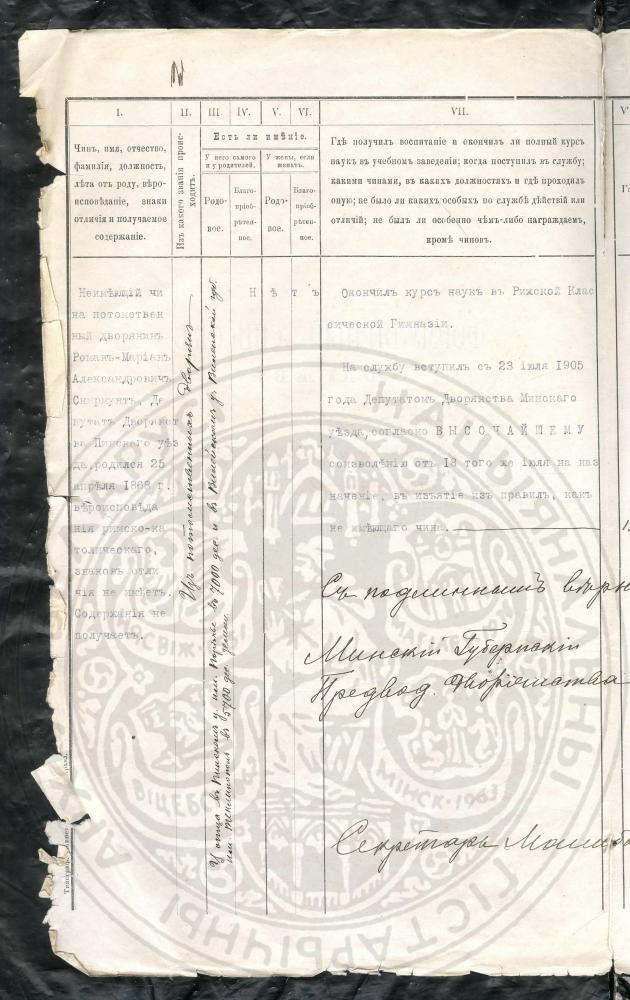 2
I.
II.
III.
IV.
V.
VI.
VII.
Чинъ, имя, отчество,
фамилія, должность,
лѣта отъ роду, вѣро-
исповѣданіе, знаки
отличія и получаемое
содержаніе.
Изъ какого званія проис-
ходитъ.
Есть ли имѣніе.
У него самого
и у родителей.
У жены, если
женатъ.
Родо-
вое.
Благо-
пріоб-
рѣтен-
ное.
Родо-
вое.
Благо-
пріоб-
рѣтен-
ное.
Гдѣ получилъ воспитаніе и окончилъ ли полный курсъ
наукъ въ учебномъ заведеніи; когда поступилъ въ службу;
какими чинами, въ какихъ должностяхъ и гдѣ проходилъ
оную; не было ли какихъ особыхъ по службѣ дѣйствій или
отличій; не былъ ли особенно чѣмъ-либо награждаемъ,
кромѣ чиновъ.
Неимѣющій чи
на потомствен
ный дворянинъ
Романъ-Маріанъ
Александровичъ
Скирмунтъ, Де
путатъ Дворянст
ва Пинскаго уѣз
да, родился 25
апрѣля 1868 г.
вѣроисповѣда
нія римско-ка
толическаго,
знаковъ отли
чія не имѣетъ.
Содержанія не
получаетъ.
Изъ потомственныхъ дворянъ
У отца въ Пинскомъ у. имѣн. Порѣчье въ 7000 дес. и въ
въ 5700 дес. земли.
Н ѣ т ъ
Окончилъ курсъ наукъ въ Рижской Клас
сической Гимназіи.
На службу вступилъ съ 23 іюля 1905
года Депутатомъ Дворянства Минскаго
уѣзда, согласно ВЫСОЧАЙШЕМУ
соизволѣнію отъ 18 того же іюля на наз
наченіе, въ изъятіе изъ правилъ, какъ
не имѣющаго чина.
Съ подлиннымъ вѣрно
Минскій Губернскій
Предвод. Дворянства
Секретарь